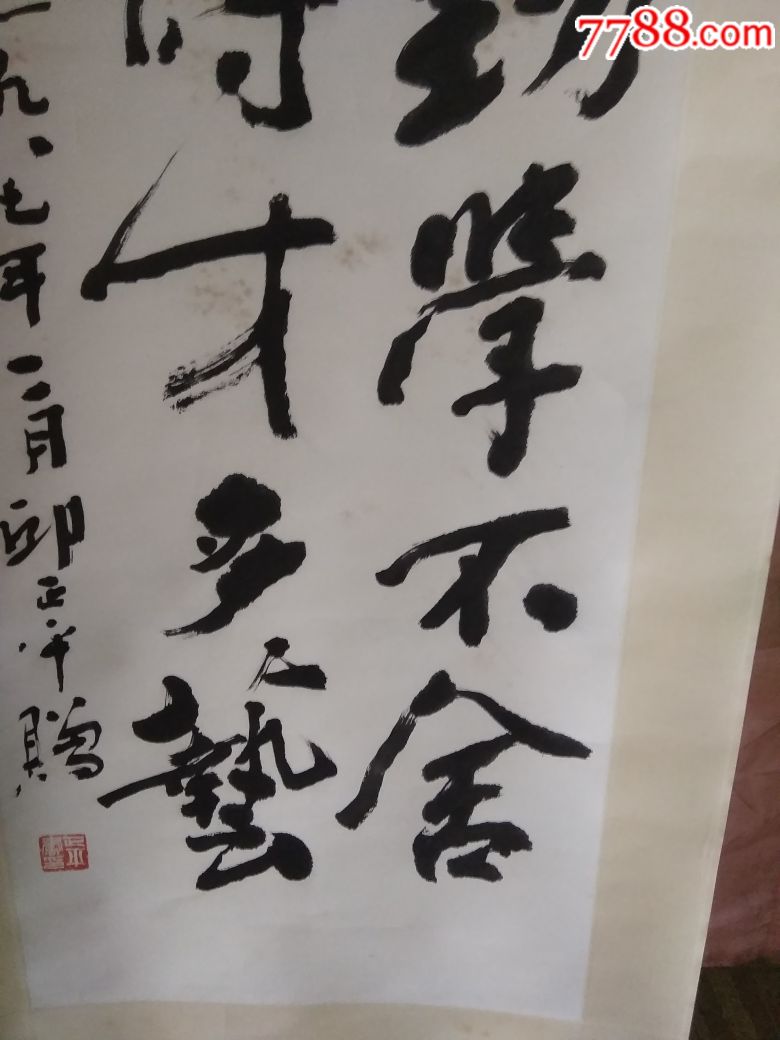 7788.com
勤學不舍
時才多藝
一九八七年二月邱正平贈